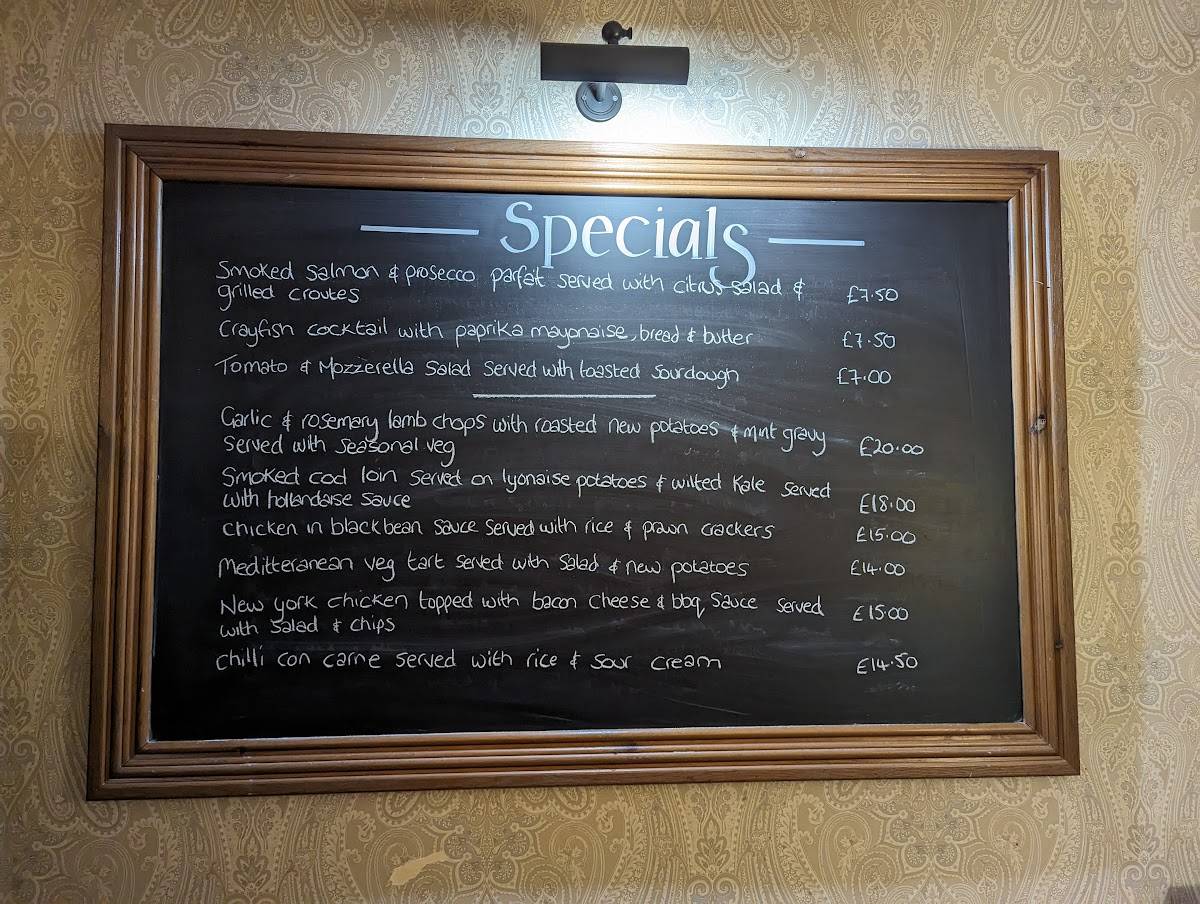 Specials
Smoked salmon & prosecco parfait served with citrus salad & £7.50
grilled croutes
Crayfish cocktail with paprika mayonaise, bread & butter £7.50
Tomato & Mozzerella Salad Served with toasted Sourdough £7.00
Garlic & rosemary lamb chops with roasted new potatoes & mint gravy £20.00
Served with Seasonal veg
Smoked cod loin served on lyonaise potatoes & wilted Kale served £18.00
with hollandaise sauce
chicken in blackbean sauce served with rice & prawn crackers £15.00
Meditteranean veg tart served with Salad & new potatoes £14.00
New york chicken topped with bacon cheese & bbq sauce served £15.00
with salad & chips
chilli con carne served with rice & sour cream £14.50